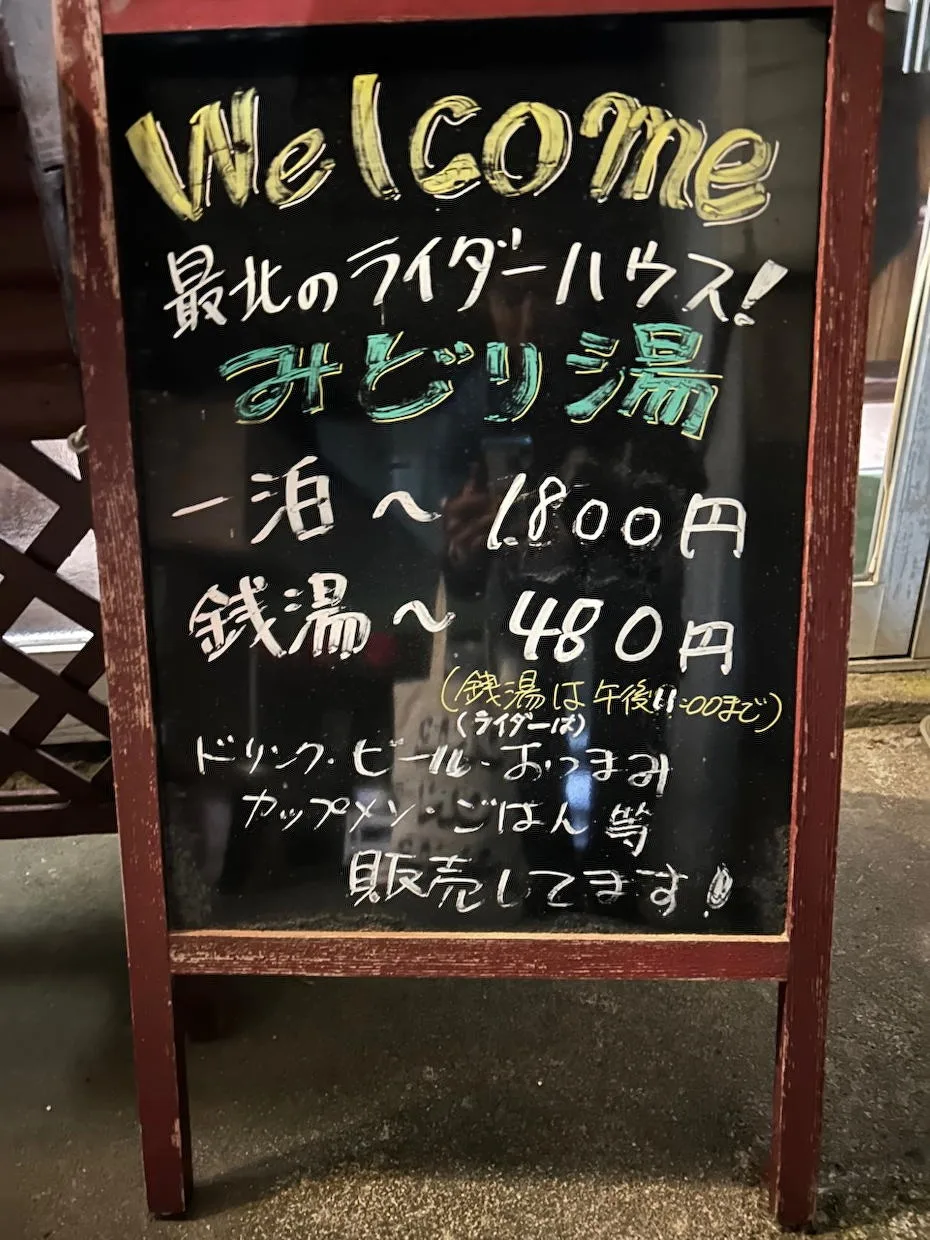 Welcome
最北のライダーハウス!
みどり湯
一泊〜 1.800円
銭湯〜 480円
(銭湯は午後11:00まで)
(ライダーは)
ドリンク・ビール・おつまみ
カップメン・ごはん 等
販売してます!